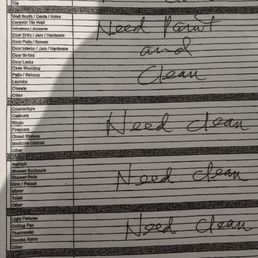 Tile
Wall Scuffs / Dents / Holes
Ceramic Tile Wall
Windows / Screens
Door Entry / Jam / Hardware
Door Patio / Screen
Door Interior / Jam / Hardware
Door Bi-fold
Door Locks
Base Moulding
Patio / Balcony
Laundry
Closets
Other
Need Paint
and
Clean
Countertops
Cabinets
Blinds
Fireplace
Closet Shelves
Medicine Cabinet
Other
Need clean
Bathtub
Shower Enclosure
Shower Rods
Sink / Faucet
Mirror
Toilet
Other
Need clean
Light Fixtures
Ceiling Fan
Thermostat
Smoke Alarm
Other
Need Clean